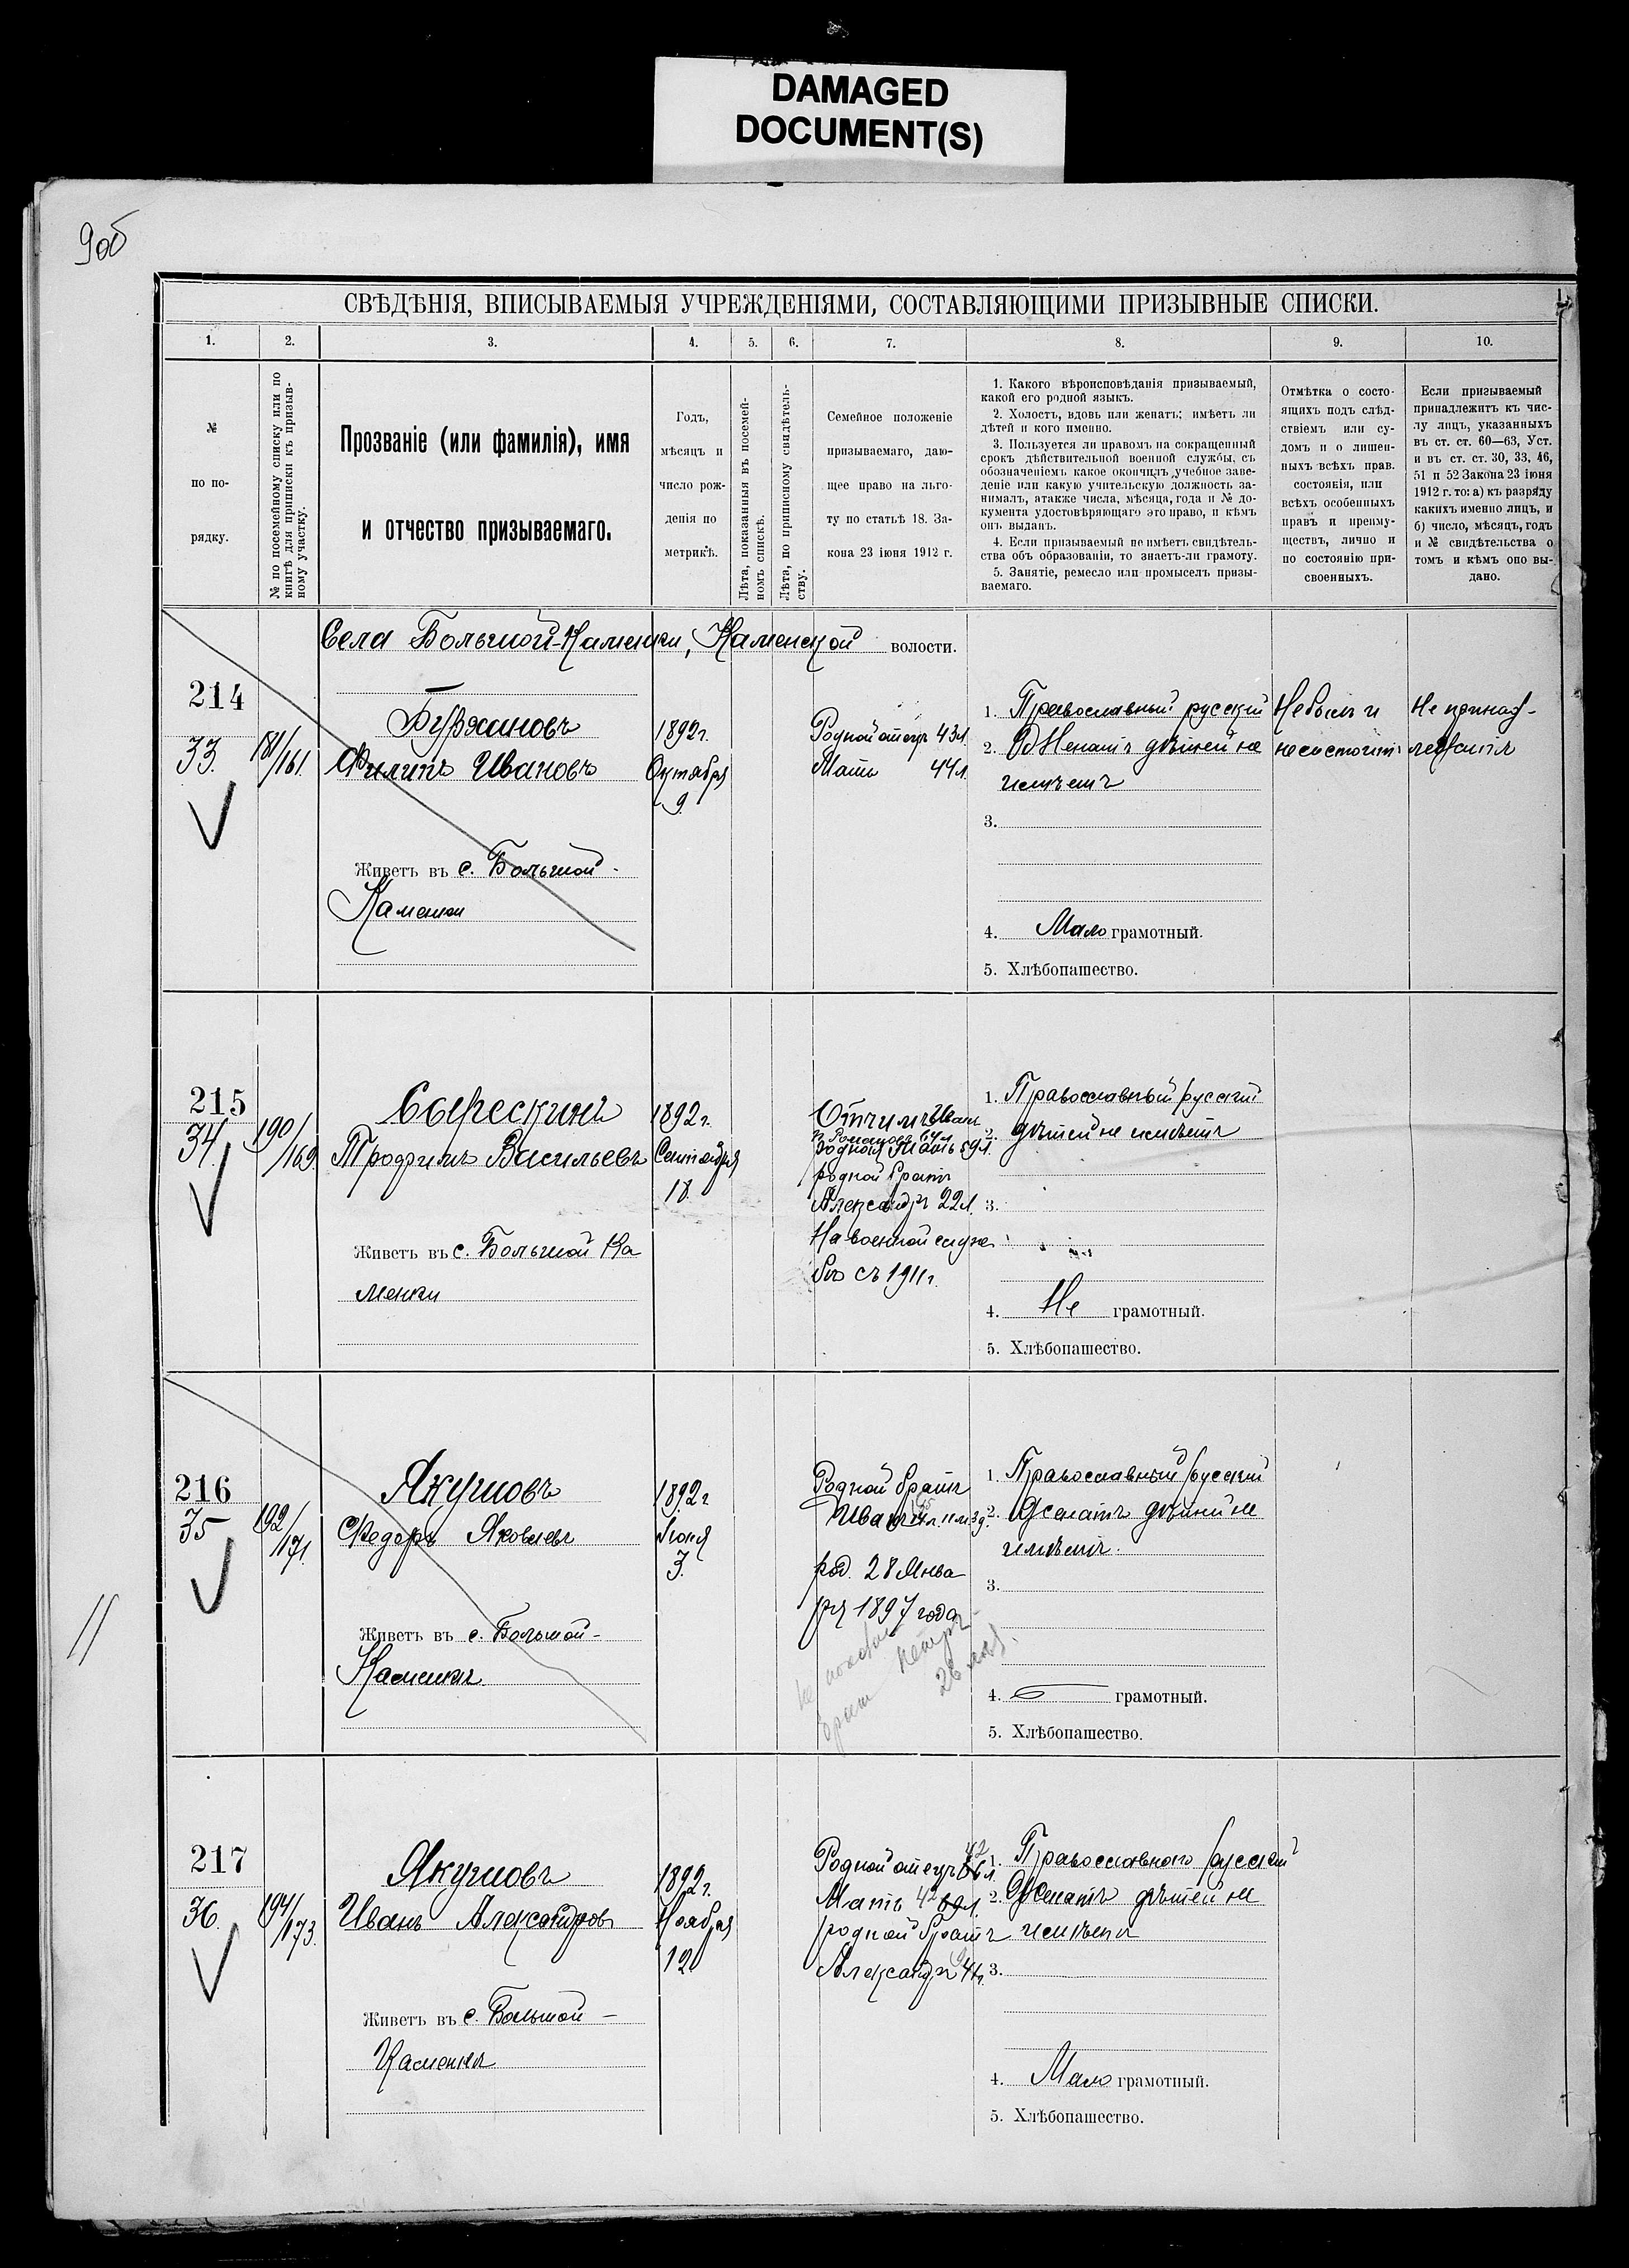 DAMAGED
DOCUMENT(S)
9об
СВѢДѢНІЯ, ВПИСЫВАЕМЫЯ УЧРЕЖДЕНІЯМИ, СОСТАВЛЯЮЩИМИ ПРИЗЫВНЫЕ СПИСКИ.
1.
2.
3.
4.
5.
6.
7.
8.
9.
10.
№
по по-
рядку.
№ по посемейному списку или по
книгѣ для приписки къ призыв-
ному участку.
Прозваніе (или фамилія), имя
и отчество призываемаго.
Годъ,
мѣсяцъ и
число рож-
денія по
метрикѣ.
Лѣта, показанныя въ посемей-
номъ спискѣ.
Лѣта, по приписному свидѣтель-
ству.
Семейное положеніе
призываемаго, даю-
щее право на льго-
ту по статьѣ 18. За-
кона 23 іюня 1912 г.
1. Какого вѣроисповѣданія призываемый,
какой его родной языкъ.
2. Холостъ, вдовъ или женатъ; имѣетъ ли
дѣтей и кого именно.
3. Пользуется ли правомъ на сокращенный
срокъ дѣйствительной военной службы, съ
обозначеніемъ какое окончилъ учебное заве-
деніе или какую учительскую должность за-
нималъ, атакже числа, мѣсяца, года и № до-
кумента удостовѣряющаго это право, и кѣмъ
онъ выданъ.
4. Если призываемый не имѣетъ свидѣтель-
ства объ образованіи, то знаетъ-ли грамоту.
5. Занятіе, ремесло или промыселъ призы-
ваемаго.
Отмѣтка о состо-
ящихъ подъ слѣд-
ствіемъ или су-
домъ и о лишен-
ныхъ всѣхъ прав.
состоянія, или
всѣхъ особенныхъ
правъ и преиму-
ществъ, лично и
по состоянію при-
своенныхъ.
Если призываемый
принадлежитъ къ чис-
лу лицъ, указанныхъ
въ ст. ст. 60—63, Уст.
и въ ст. ст. 30, 33, 46,
51 и 52 Закона 23 іюня
1912 г. то: а) къ разряду
какихъ именно лицъ, и
б) число, мѣсяцъ, годъ
и № свидѣтельства о
томъ и кѣмъ оно вы-
дано.
Села Большой-Каменки, Каменской волости.
214
33.
181/161.
Филипъ Ивановъ
Живетъ въ с. Большой-
Каменки
1892 г.
Октября
9.
Родной отецъ 43 л.
Мать 44 л.
1. Православный русскій
2. Женатъ дѣтей не
имѣетъ
3.
4. Мало грамотный.
5. Хлѣбопашество.
Не былъ и
не состоитъ
Не принад-
лежитъ
215
34.
190/169
Сырескинъ
Трофимъ Васильевъ
Живетъ въ с. Большой Ка
менки
1892 г.
Сентября
18.
Отчимъ Иванъ
Романовъ 64 л.
родная Мать 59 л.
родной братъ
Александръ 22 л.
На военной служ
бѣ съ 1911 г.
1. Православный русскій
2. дѣтей не имѣетъ
3.
4. Не грамотный.
5. Хлѣбопашество.
216
35
192/171.
Якушовъ
Федоръ Яковлевъ
Живетъ въ с. Большой-
Каменки
1892 г
Іюня
3.
Родной братъ
Иванъ
род. 28 Янва
ря 1897 года
Петръ
26 лѣт.
1. Православный русскій
2. Женатъ дѣтей не
имѣетъ.
3.
4. грамотный.
5. Хлѣбопашество.
217
36.
194/173.
Якушовъ
Иванъ Александровъ
Живетъ въ с. Большой-
Каменки
1892 г.
Ноября
12
Родной отецъ 42 л.
Мать 42 л.
родной братъ
Александръ
1. Православнаго русскій
2. Женатъ дѣтей не
имѣетъ
3.
4. Мало грамотный.
5. Хлѣбопашество.